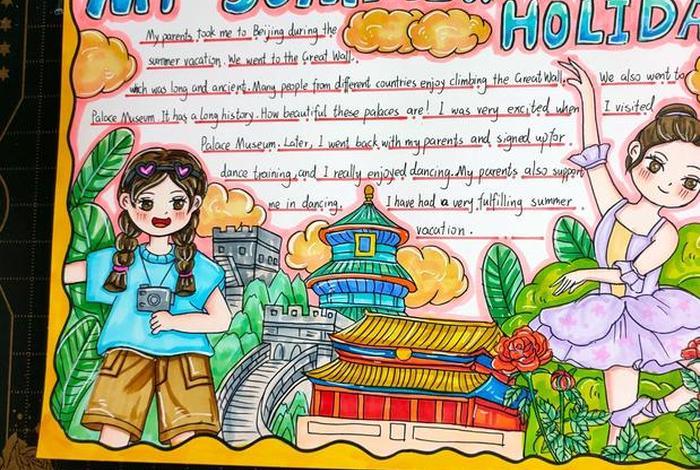 MY SUMMER
HOLIDA
My parents took me to Beijing during the
summer vacation. We went to the Great Wall,
which was long and ancient. Many people from different countries enjoy climbing the Great Wall. We also went to
Palace Museum. It has a long history. How beautiful these palaces are! I was very excited when I visited
Palace Museum. Later, I went back with my parents and signed up for
dance training, and I really enjoyed dancing. My parents also support
me in dancing. I have had a very fulfilling summer
vacation.